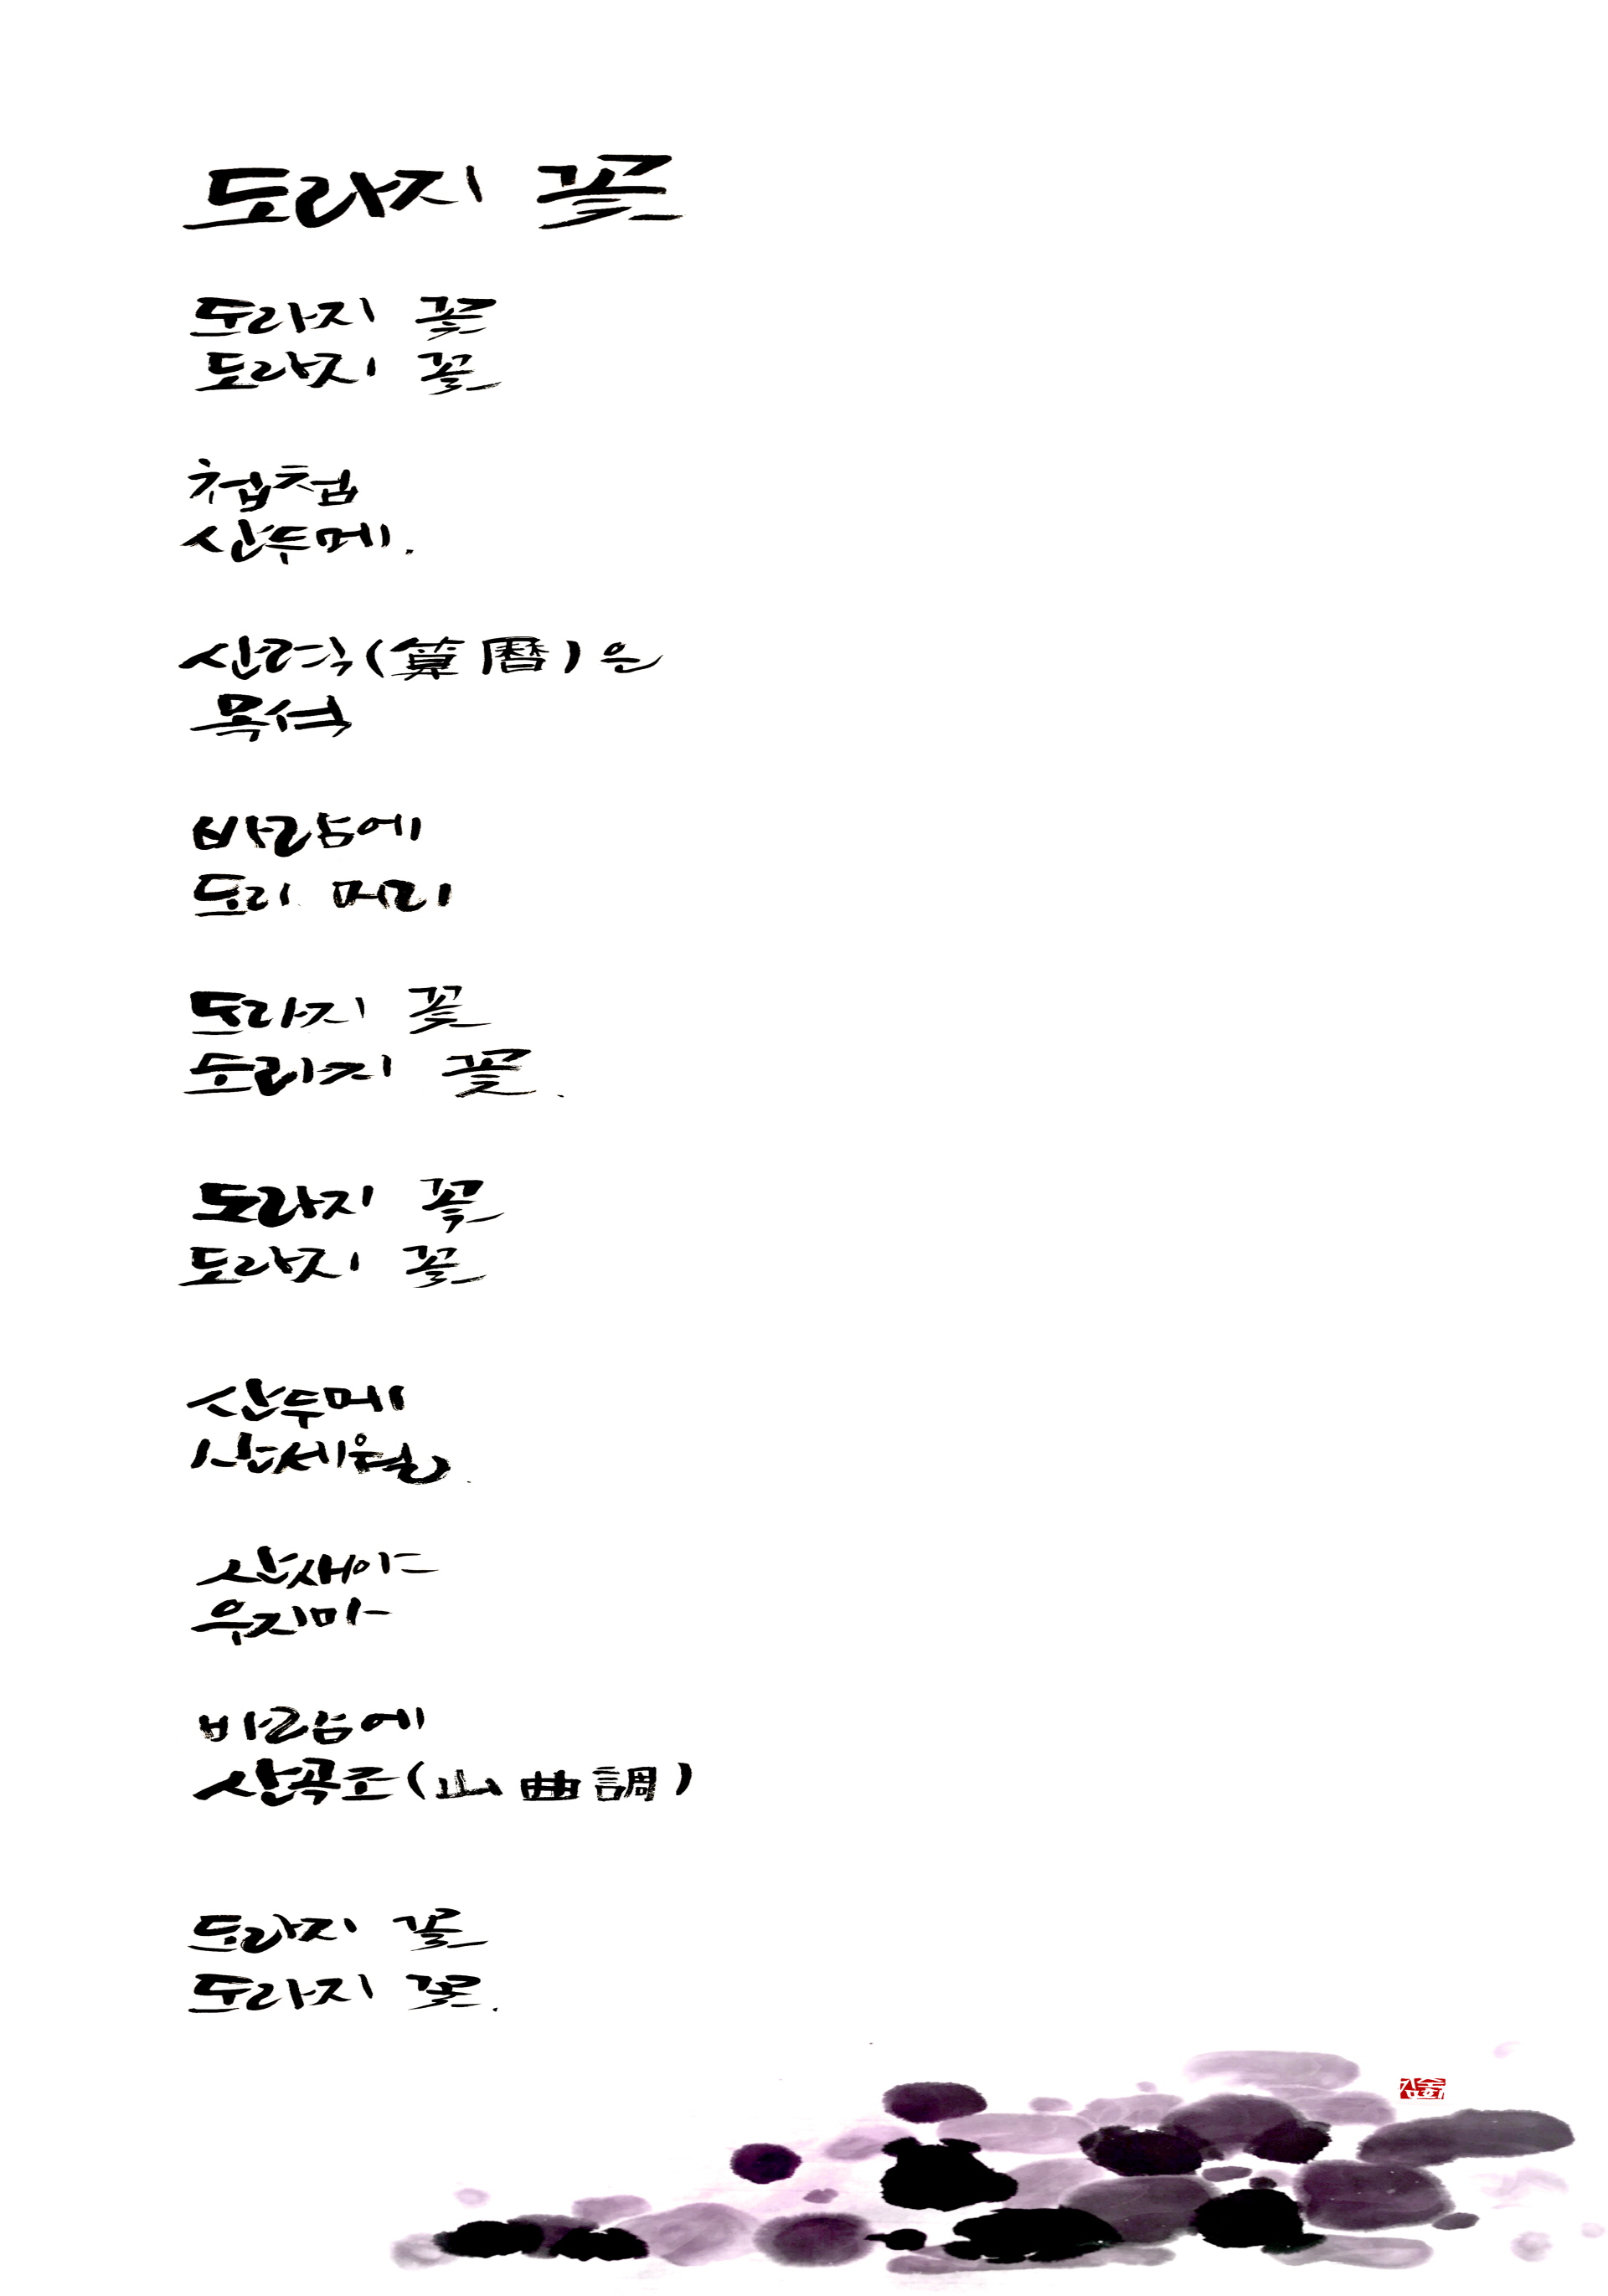 도라지 꽃
도라지 꽃
도라지 꽃
첩첩
산두메.
산력(算曆)은
목석
바람에
도리 머리
도라지 꽃
도라지 꽃.
도라지 꽃
도라지 꽃
산두메
산세월.
산새야
우지마
바람에
산곡조(山曲調)
도라지 꽃
도라지 꽃.